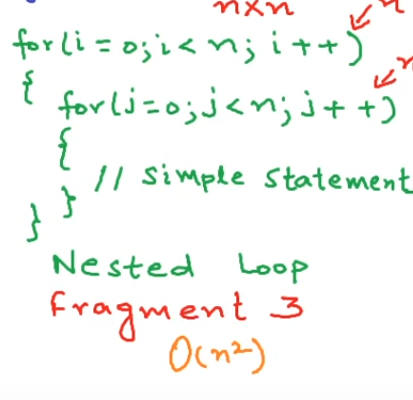 n×n
for(i=0;i<n;i++) n
{
for(j=0;j<n;j++) n
{
// Simple Statement
}
}
Nested Loop
Fragment 3
O(n²)